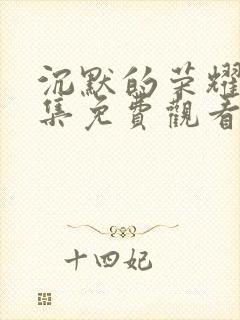 沉默的荣耀
集免費觀看
十四妃